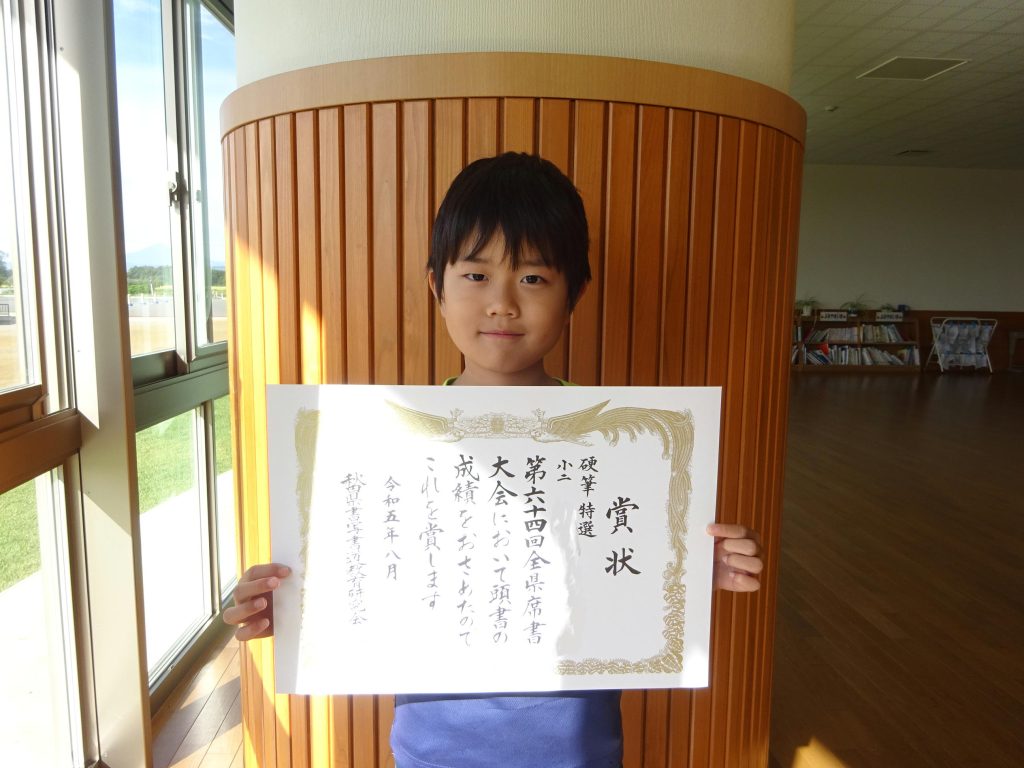 賞状
硬筆 特選
小二
第六十四回全県席書
大会において頭書の
成績をおさめたので
これを賞します
令和五年八月
秋田県書写書道教育研究会